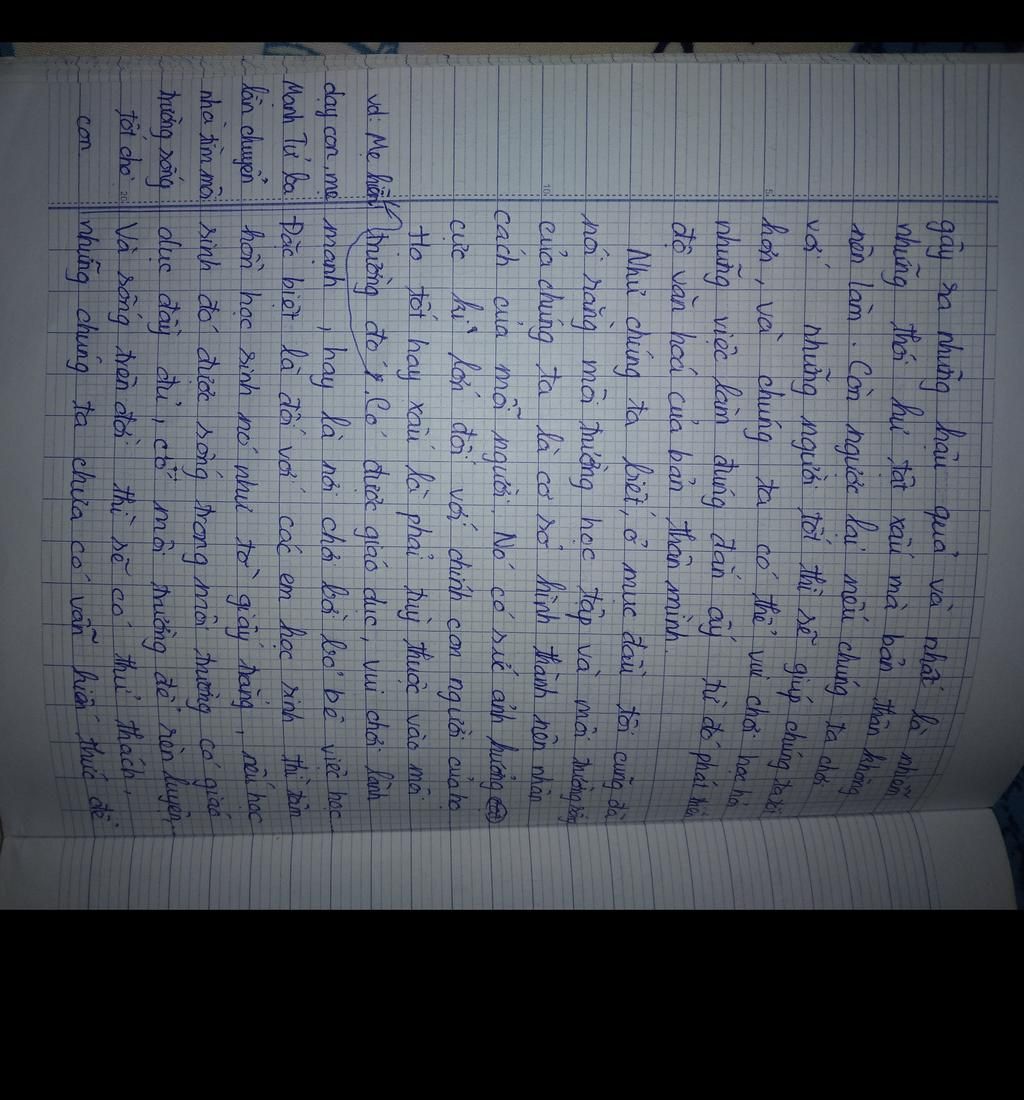 gây ra những hậu quả và nhất là nhiễm
những thói hư tật xấu mà bản thân không
nên làm. Còn ngược lại nếu chúng ta chơi
với những người tốt thì sẽ giúp chúng ta tốt
hơn, và chúng ta có thể vui chơi học hỏi
những việc làm đúng đắn ấy từ đó phát triển
độ văn hoá của bản thân mình.
Như chúng ta biết, ở mục đầu tôi cũng đã
nói rằng môi trường học tập và môi trường sống
của chúng ta là cơ sở hình thành nên nhân
cách của mỗi người. Nó có sức ảnh hưởng
cực kì lớn đối với chính con người của họ
Họ tốt hay xấu là phải tuỳ thuộc vào môi
trường đó. Có được giáo dục, vui chơi lành
mạnh, hay là nơi chơi bời bỏ bê việc học.
Đặc biệt là đối với các em học sinh thì tâm
hồn học sinh nó như tờ giấy trắng, nếu học
sinh đó được sống trong môi trường có giáo
dục đầy đủ, có môi trường để rèn luyện
Và sống trên đời thì sẽ có thử thách,
những chúng ta chưa có vẫn kiến thức để
vd: Mẹ hiền
dạy con, mẹ
Mạnh Tử ba
lần chuyển
nhà tìm môi
trường sống
tốt cho
con